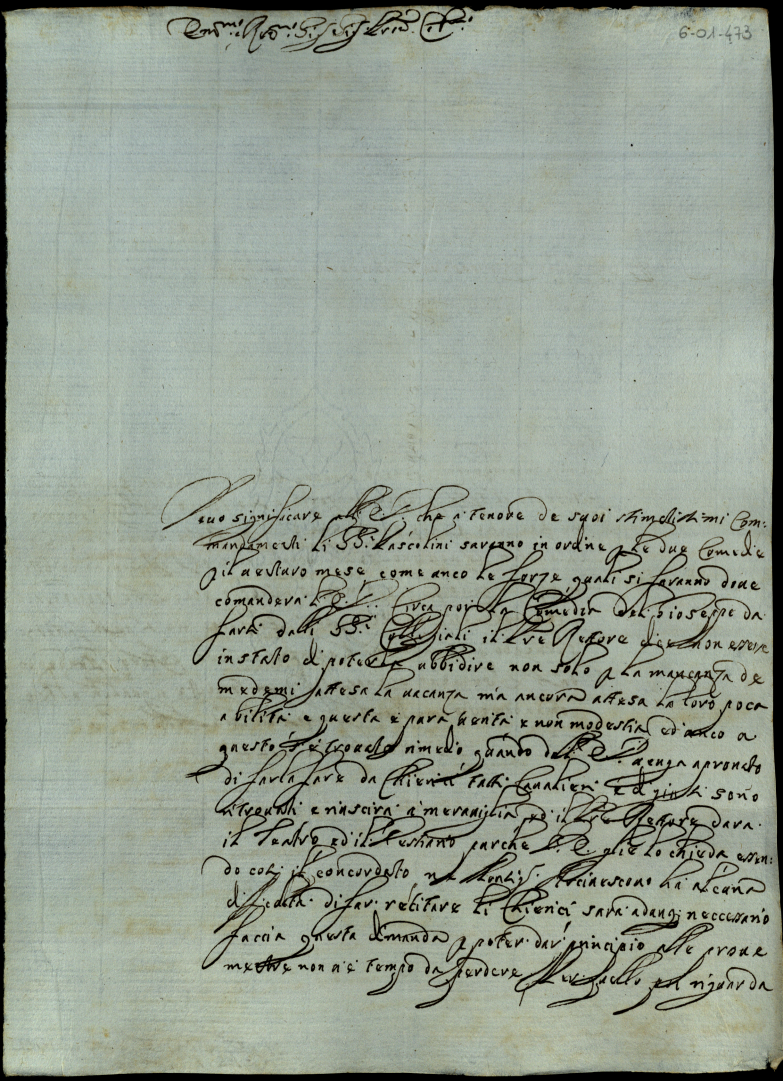 6-01-473
Devo significare all'E. V. che a tenore de suoi stimatissimi Com-
mandamenti li SS.ri saranno in ordine p le due Comedie
p il venturo mese come anco le forze quali si faranno dove
comanderà Circa poi la Comedia del Gioseppe da
farsi dalli SS.ri il Pre Rettore dice non essere
in stato di poterla ubbidire non solo p la mancanza de
medemi attesa la vacanza ma ancora attesa la loro poca
abilità e questa è pura verità e non modestia ed anco a
questo s'è trovato rimedio quando dall'E. V. venga aprovato
di farla fare da Chierici Cavalieri e di già si sono
ritrovati e riuscirà a meraviglia ed il Pre Rettore darà
il Teatro ed il Vestiario parche V. E. glie lo chieda essen-
do così il concordato ha alcuna
difficoltà di far recitare li Chierici sarà adunq. neccessario
faccia questa dimanda p poter dar principio alle prove
mentre non v'è tempo da perdere Per quello poi riguarda